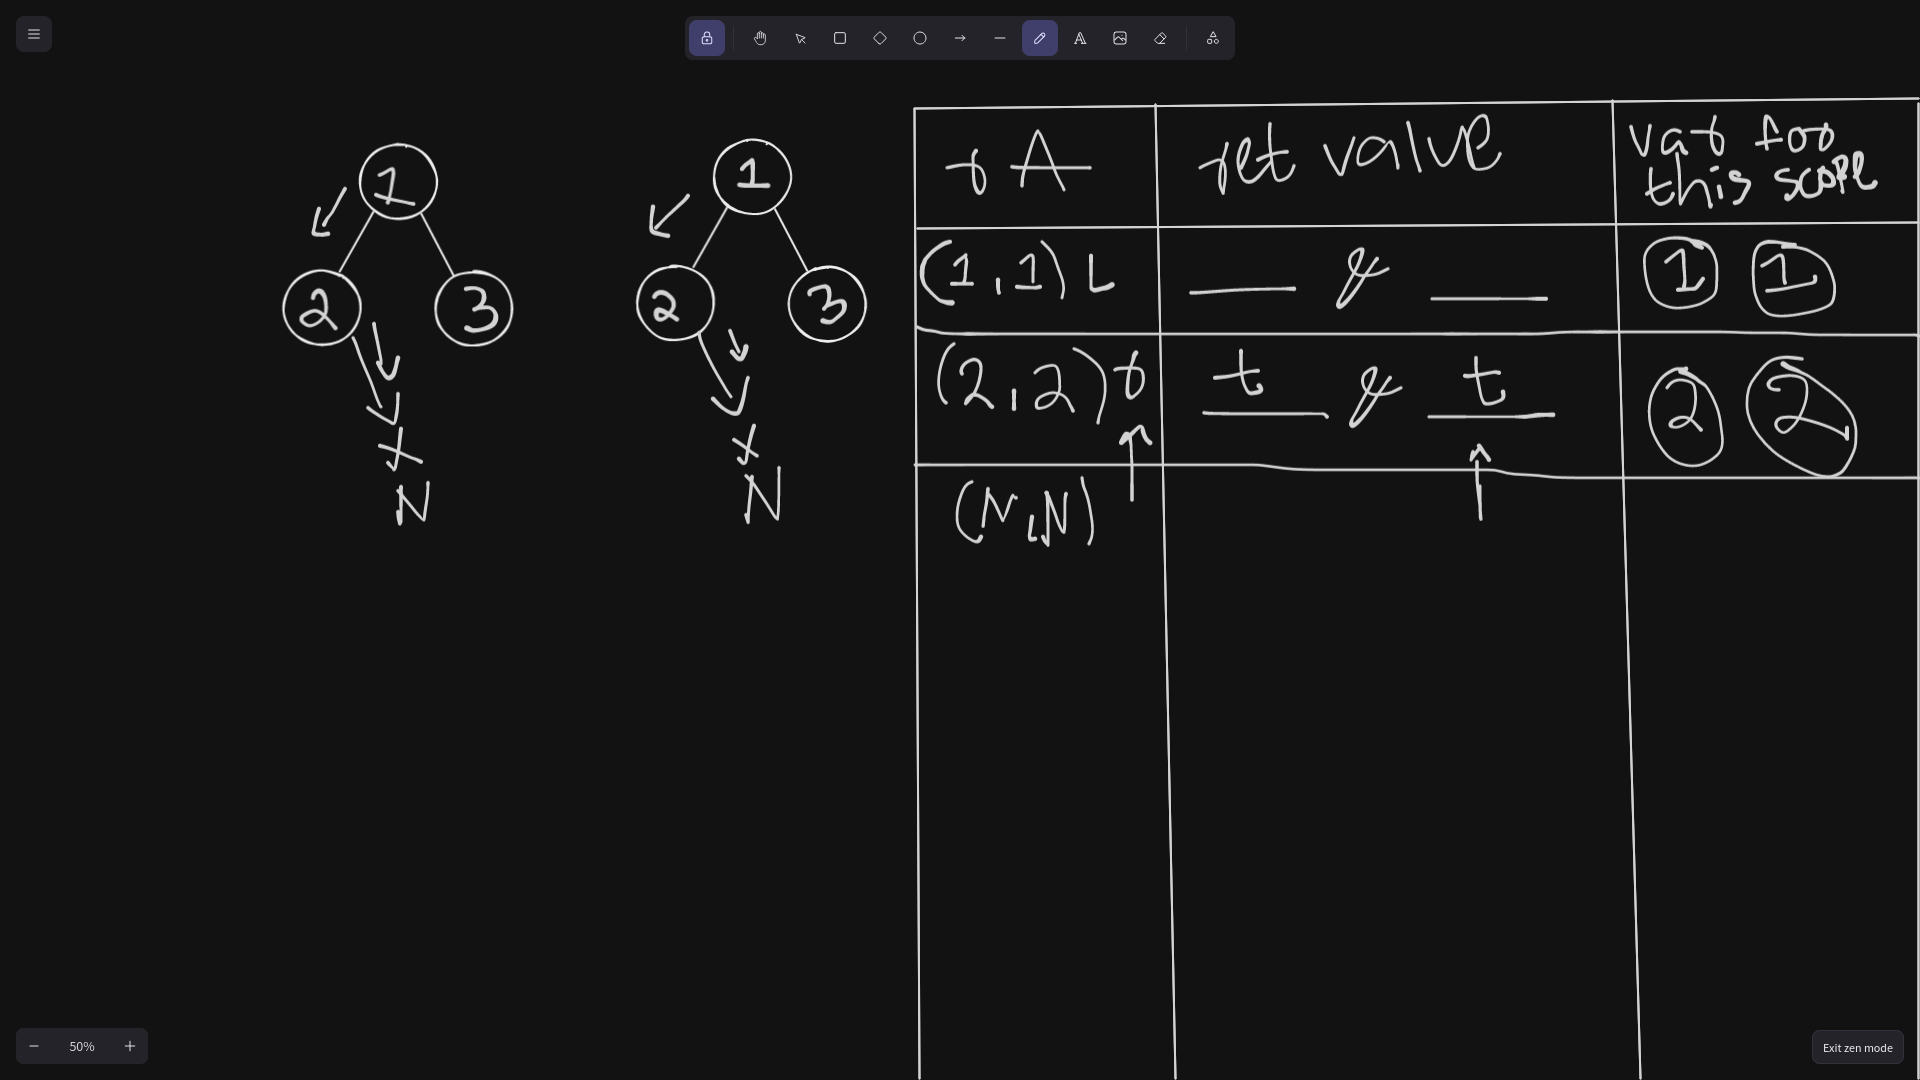 1
2
3
x
N
1
2
3
x
N
rA
ret value
var for
this scope
(1,1) L
___ & ___
1 1
(2,2) r
t & t
2 2
(N,N)
50%
Exit zen mode